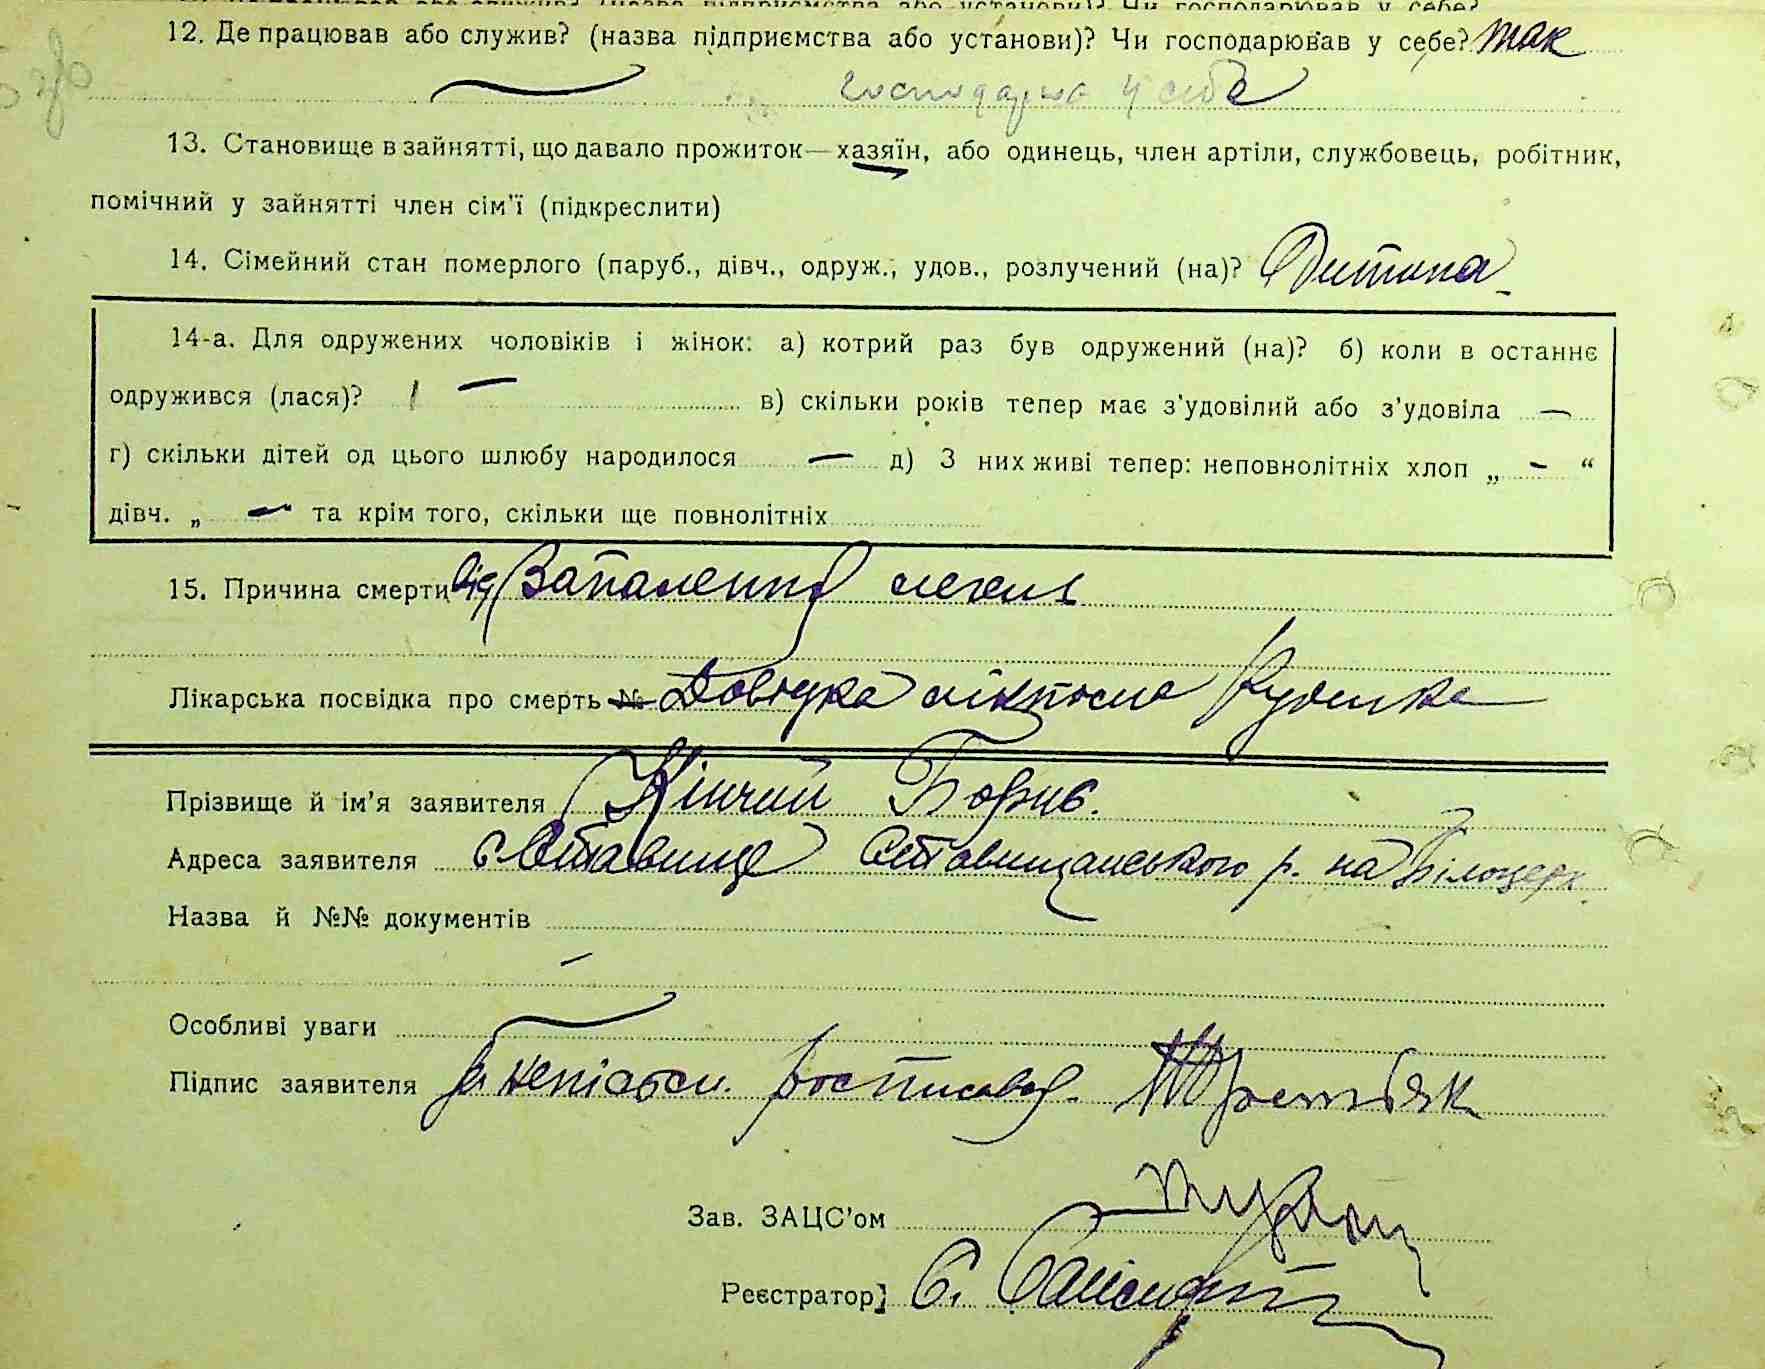 12. Де працював або служив? (назва підприємства або установи)? Чи господарював у себе? так
господарює у себе
13. Становище в зайнятті, що давало прожиток—хазяїн, або одинець, член артіли, службовець, робітник,
помічний у зайнятті член сім'ї (підкреслити)
14. Сімейний стан померлого (паруб., дівч., одруж., удов., розлучений (на)? Дитина
14-а. Для одружених чоловіків і жінок: а) котрий раз був одружений (на)? б) коли в останнє
одружився (лася)? — в) скільки років тепер має з'удовілий або з'удовіла —
г) скільки дітей од цього шлюбу народилося — д) З них живі тепер: неповнолітніх хлоп „ - “
дівч. „ — " та крім того, скільки ще повнолітніх
15. Причина смерти від Запалення легень
Лікарська посвідка про смерть № Довідка
Прізвище й ім'я заявителя Кінчий Борис.
Адреса заявителя с Ставище Ставищанського р. на Білоцерк.
Назва й №№ документів
—
Особливі уваги
Підпис заявителя
Зав. ЗАЦС'ом
Реєстратор